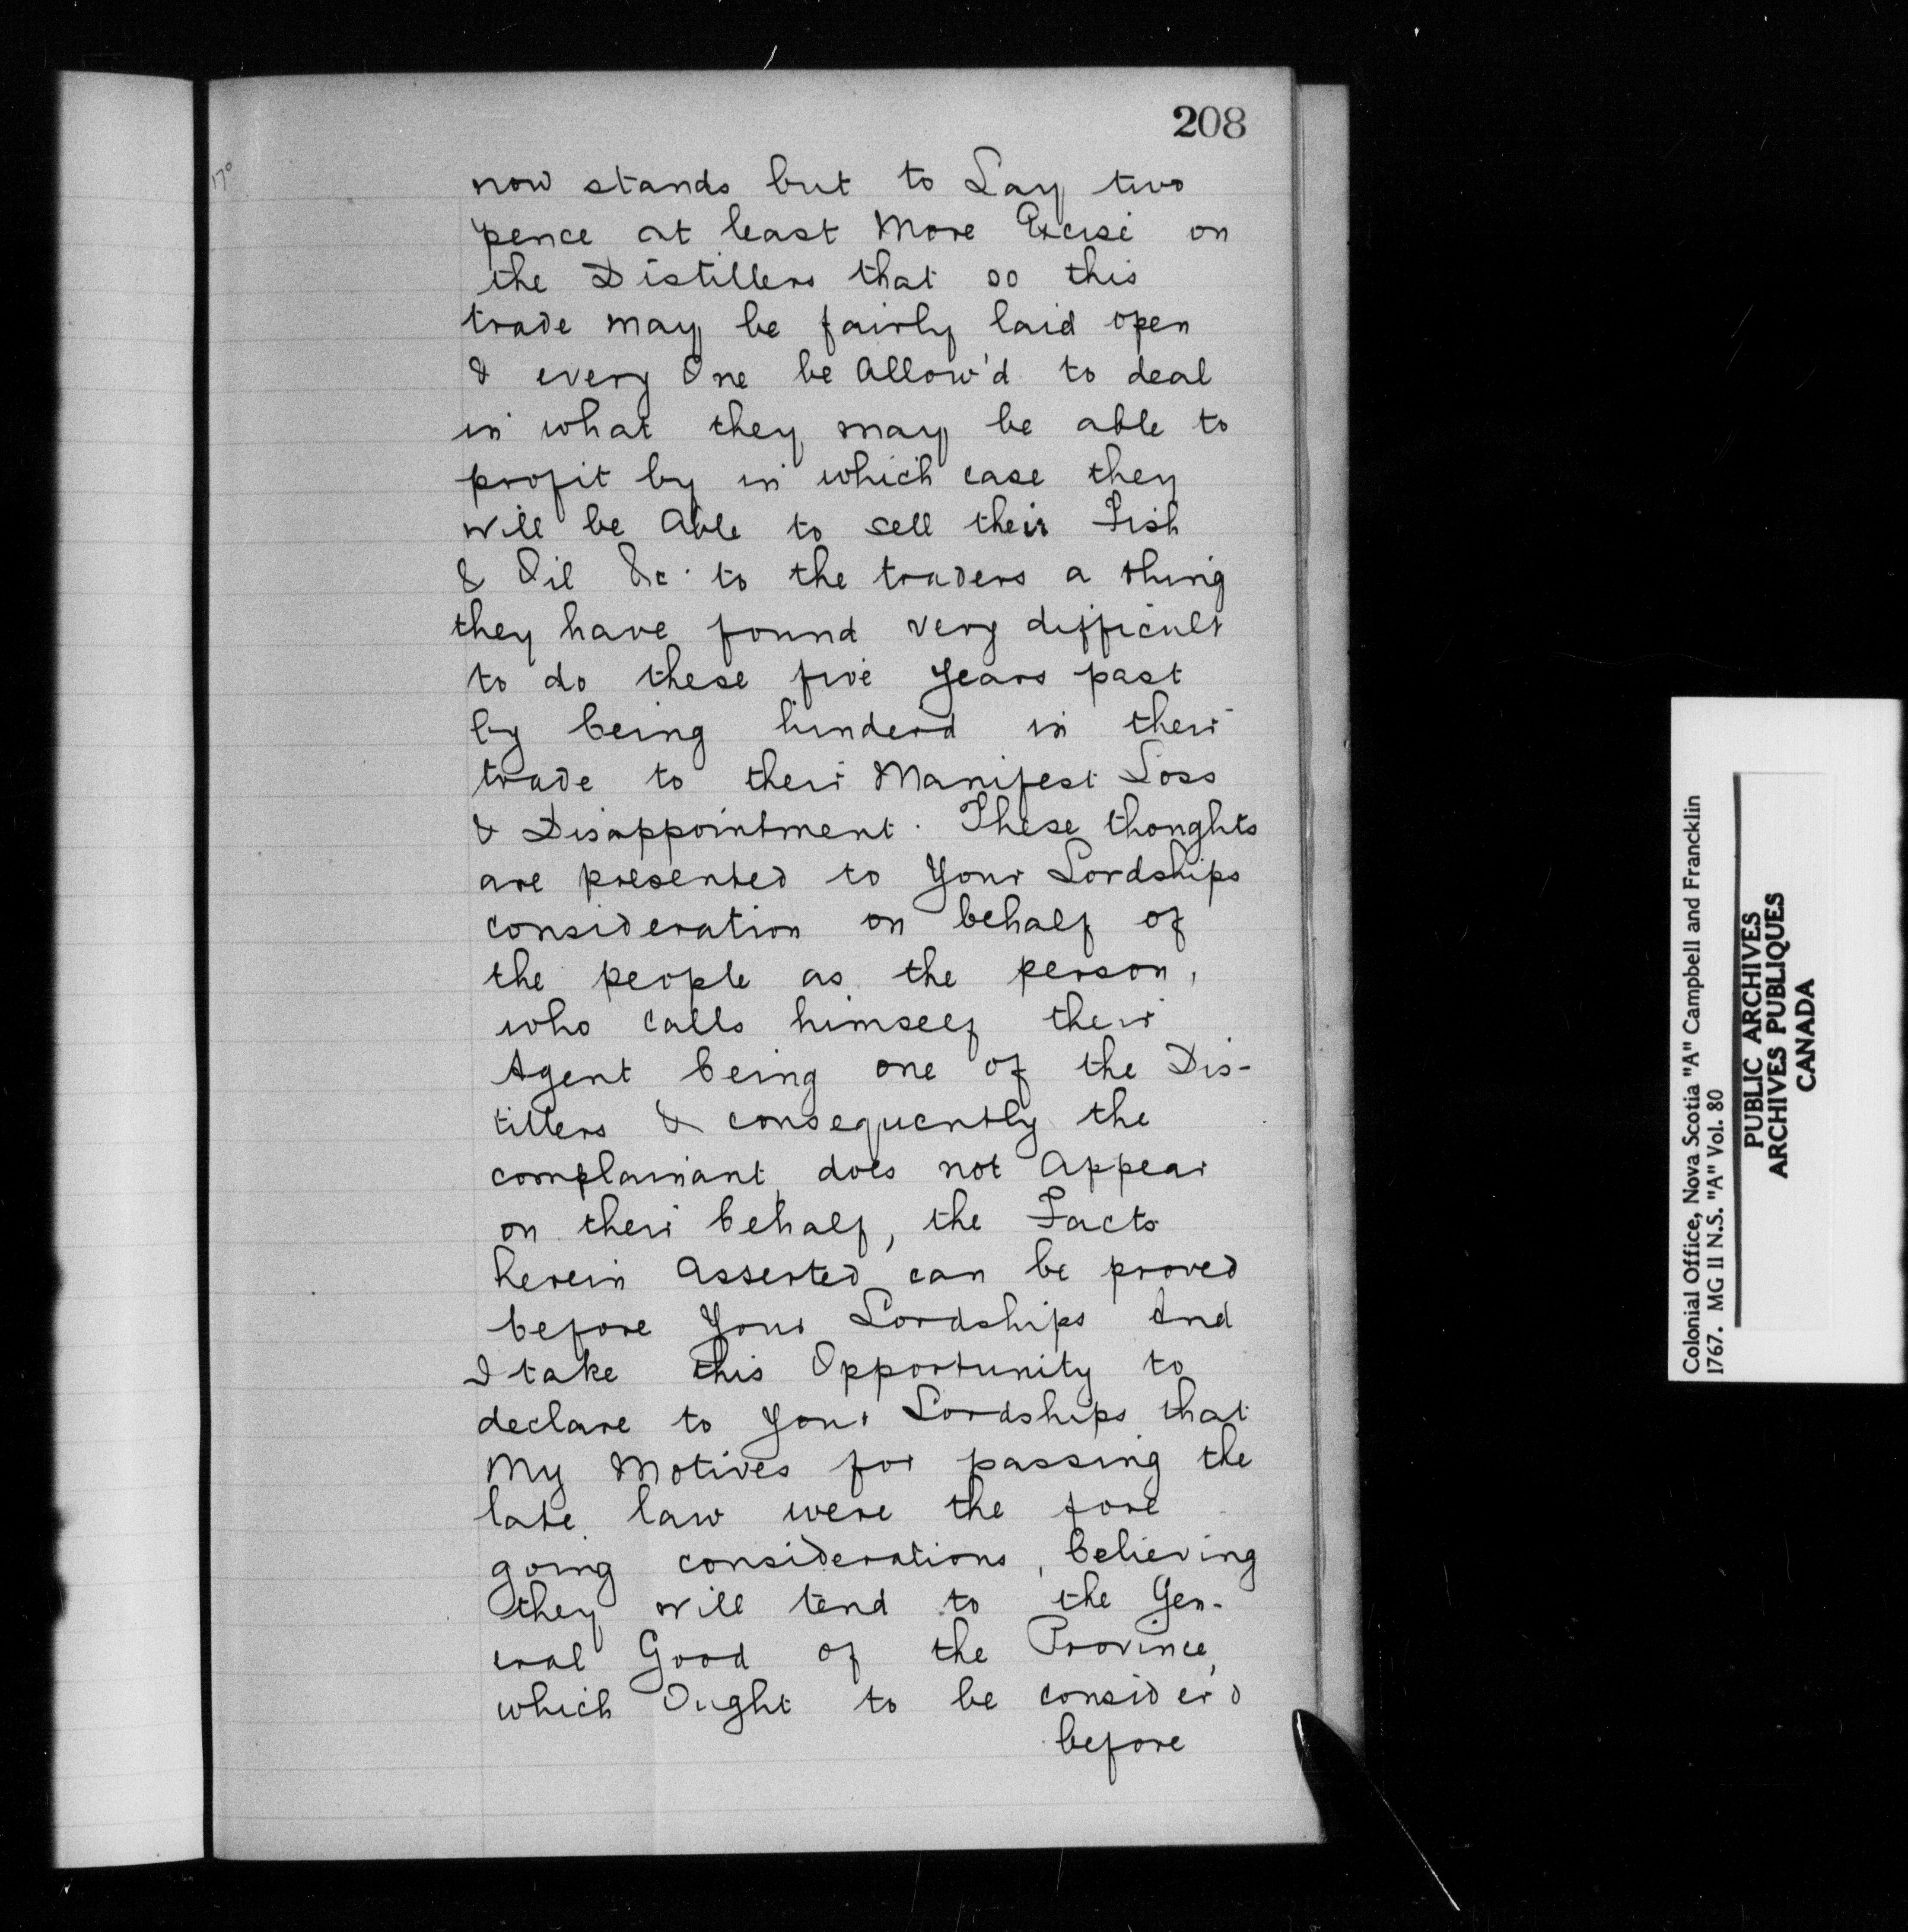 208
170
now stands but to Lay two
pence at least More Excise on
the Distillers that so this
trade may be fairly laid open
& every One be Allow'd to deal
in what they may be able to
profit by in which case they
will be Able to sell their Fish
& Oil &c. to the traders a thing
they have found very difficult
to do these five Years past
by being hinderd in their
trade to their Manifest Loss
& Disappointment. These thoughts
are presented to Your Lordships
consideration on behalf of
the people as the person,
who calls himself their
Agent being one of the Dis-
tillers & consequently the
complainant, does not Appear
on their behalf, the Facts
herein Asserted can be proved
before Your Lordships And
I take this Opportunity to
declare to Your Lordships that
My Motives for passing the
late law were the fore
going considerations, believing
they will tend to the Gen-
eral Good of the Province,
which Ought to be consider'd
before
Colonial Office, Nova Scotia "A" Campbell and Francklin
1767. MG II N.S. "A" Vol. 80
PUBLIC ARCHIVES
ARCHIVES PUBLIQUES
CANADA